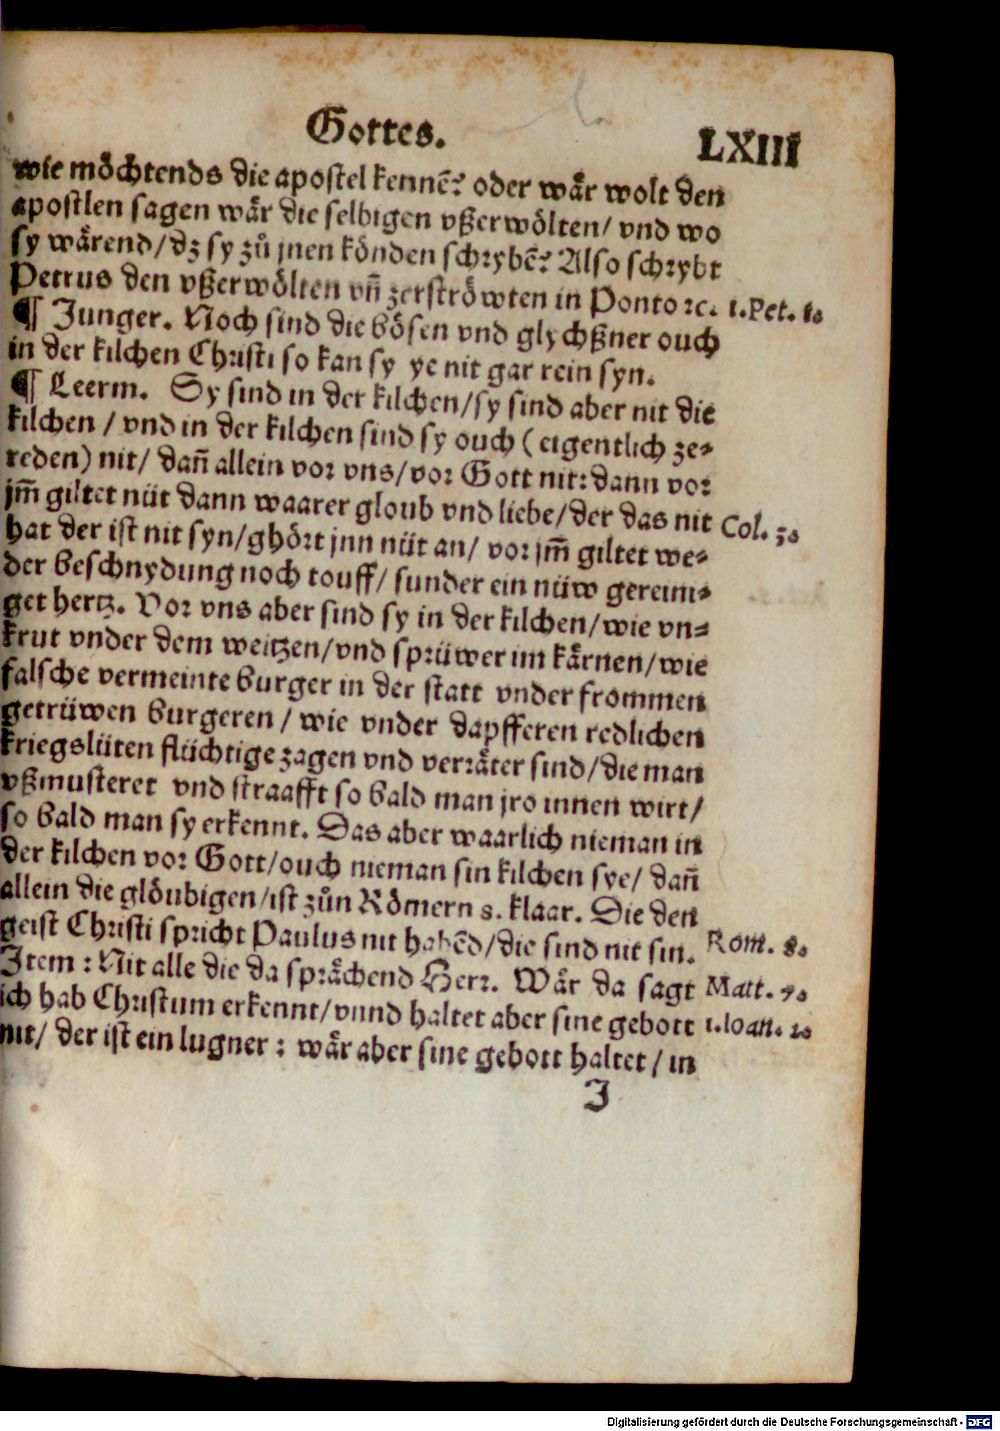 Gottes.
LXIII
wie moͤchtends die apostel kennē? oder waͤr wolt den
apostlen sagen waͤr die selbigen vßerwoͤlten/ vnd wo
sy waͤrend/dz sy zů jnen koͤnden schrybē? Also schrybt
Petrus den vßerwoͤlten vn̄ zerstroͤwten in Ponto ꝛc. 1.Pet. 1.
¶ Junger. Noch sind die boͤsen vnd glychßner ouch
in der kilchen Christi so kan sy ye nit gar rein syn.
¶ Leerm. Sy sind in der kilchen/sy sind aber nit die
kilchen / vnd in der kilchen sind sy ouch (eigentlich ze-
reden) nit/ dan̄ allein vor vns/vor Gott nit: dann vor
jm̄ giltet nüt dann waarer gloub vnd liebe/der das nit Col. 3.
hat der ist nit syn/ghoͤrt jnn nüt an/ vor jm̄ giltet we-
der beschnydung noch touff/ sunder ein nüw gereini-
get hertz. Vor vns aber sind sy in der kilchen/wie vn-
krut vnder dem weitzen/vnd sprüwer im kaͤrnen/wie
falsche vermeinte burger in der statt vnder frommen
getrüwen burgeren / wie vnder dapfferen redlichen
kriegslüten flüchtige zagen vnd verraͤter sind/die man
vßmusteret vnd straafft so bald man jro innen wirt/
so bald man sy erkennt. Das aber waarlich nieman in
der kilchen vor Gott/ouch nieman sin kilchen sye/ dan̄
allein die gloͤubigen/ist zůn Roͤmern 8. klaar. Die den
geist Christi spricht Paulus nit habēd/die sind nit sin. Rom. 8.
Item : Nit alle die da spraͤchend Herr. Waͤr da sagt Matt. 7.
ich hab Christum erkennt/vnnd haltet aber sine gebott 1.Ioan. 2.
nit/ der ist ein lugner : waͤr aber sine gebott haltet / in
J
Digitalisierung gefördert durch die Deutsche Forschungsgemeinschaft - DFG